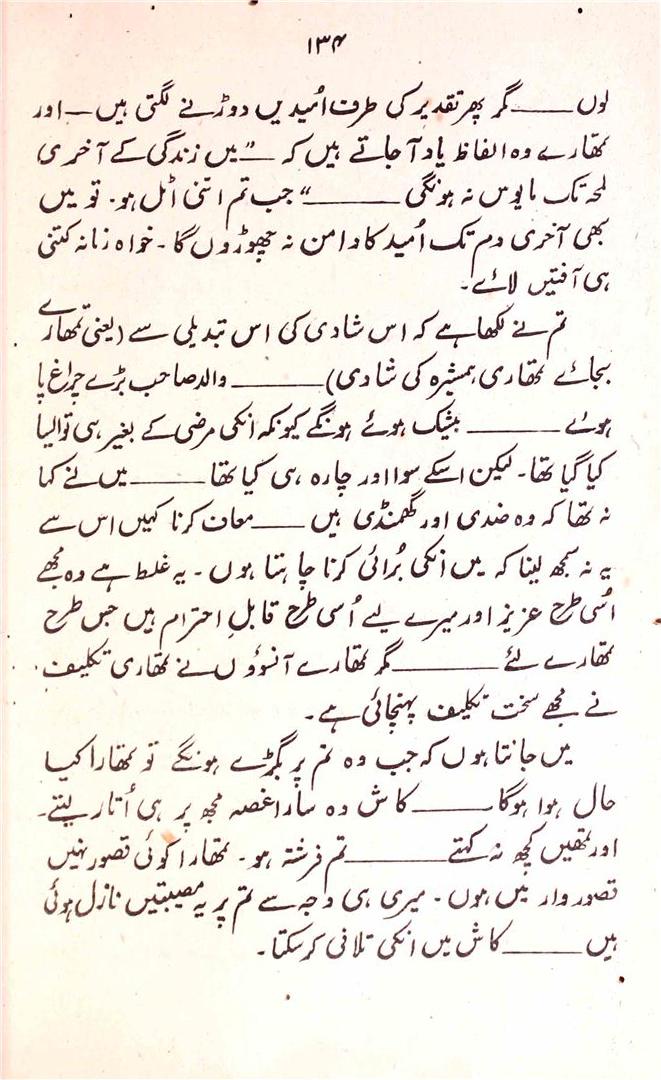 ۱۳۴
لوں ——— گر پھر تقدیر کی طرف اُمیدیں دوڑنے لگتی ہیں — اور
تمھارے وہ الفاظ یاد آجاتے ہیں کہ — ”میں زندگی کے آخری
لمحہ تک مایوس نہ ہونگی ———“ جب تم اتنی اٹل ہو۔ تو میں
بھی آخری دم تک اُمید کا دامن نہ چھوڑوں گا۔ خواہ زمانہ کتنی
ہی آفتیں لائے۔
تم نے لکھا ہے کہ اس شادی کی اس تبدیلی سے (یعنی تمھارے
بجائے تمھاری ہمشیرہ کی شادی) ——— والد صاحب بڑے چراغ پا
ہوئے ——— بیشک ہوئے ہونگے کیونکہ انکی مرضی کے بغیر ہی تو ایسا
کیا گیا تھا۔ لیکن اسکے سوا اور چارہ ہی کیا تھا ——— میں نے کہا
نہ تھا کہ وہ ضدی اور گھمنڈی ہیں —— معاف کرنا کہیں اس سے
یہ نہ سمجھ لینا کہ میں انکی بُرائی کرنا چاہتا ہوں۔ یہ غلط ہے وہ مجھے
اُسی طرح عزیز اور میرے لیے اُسی طرح قابلِ احترام ہیں جس طرح
تمھارے لئے ——— گر تمھارے آنسوؤں نے تمھاری تکلیف
نے مجھے سخت تکلیف پہنچائی ہے۔
میں جانتا ہوں کہ جب وہ تم پر بگڑے ہونگے تو تمھارا کیا
حال ہوا ہوگا ——— کاش وہ سارا غصہ مجھ پر ہی اُتار لیتے۔
اور تمھیں کچھ نہ کہتے ——— تم فرشتہ ہو۔ تمھارا کوئی قصور نہیں
قصور وار میں ہوں۔ میری ہی وجہ سے تم پر یہ مصیبتیں نازل ہوئی
ہیں ——— کاش میں انکی تلافی کرسکتا۔